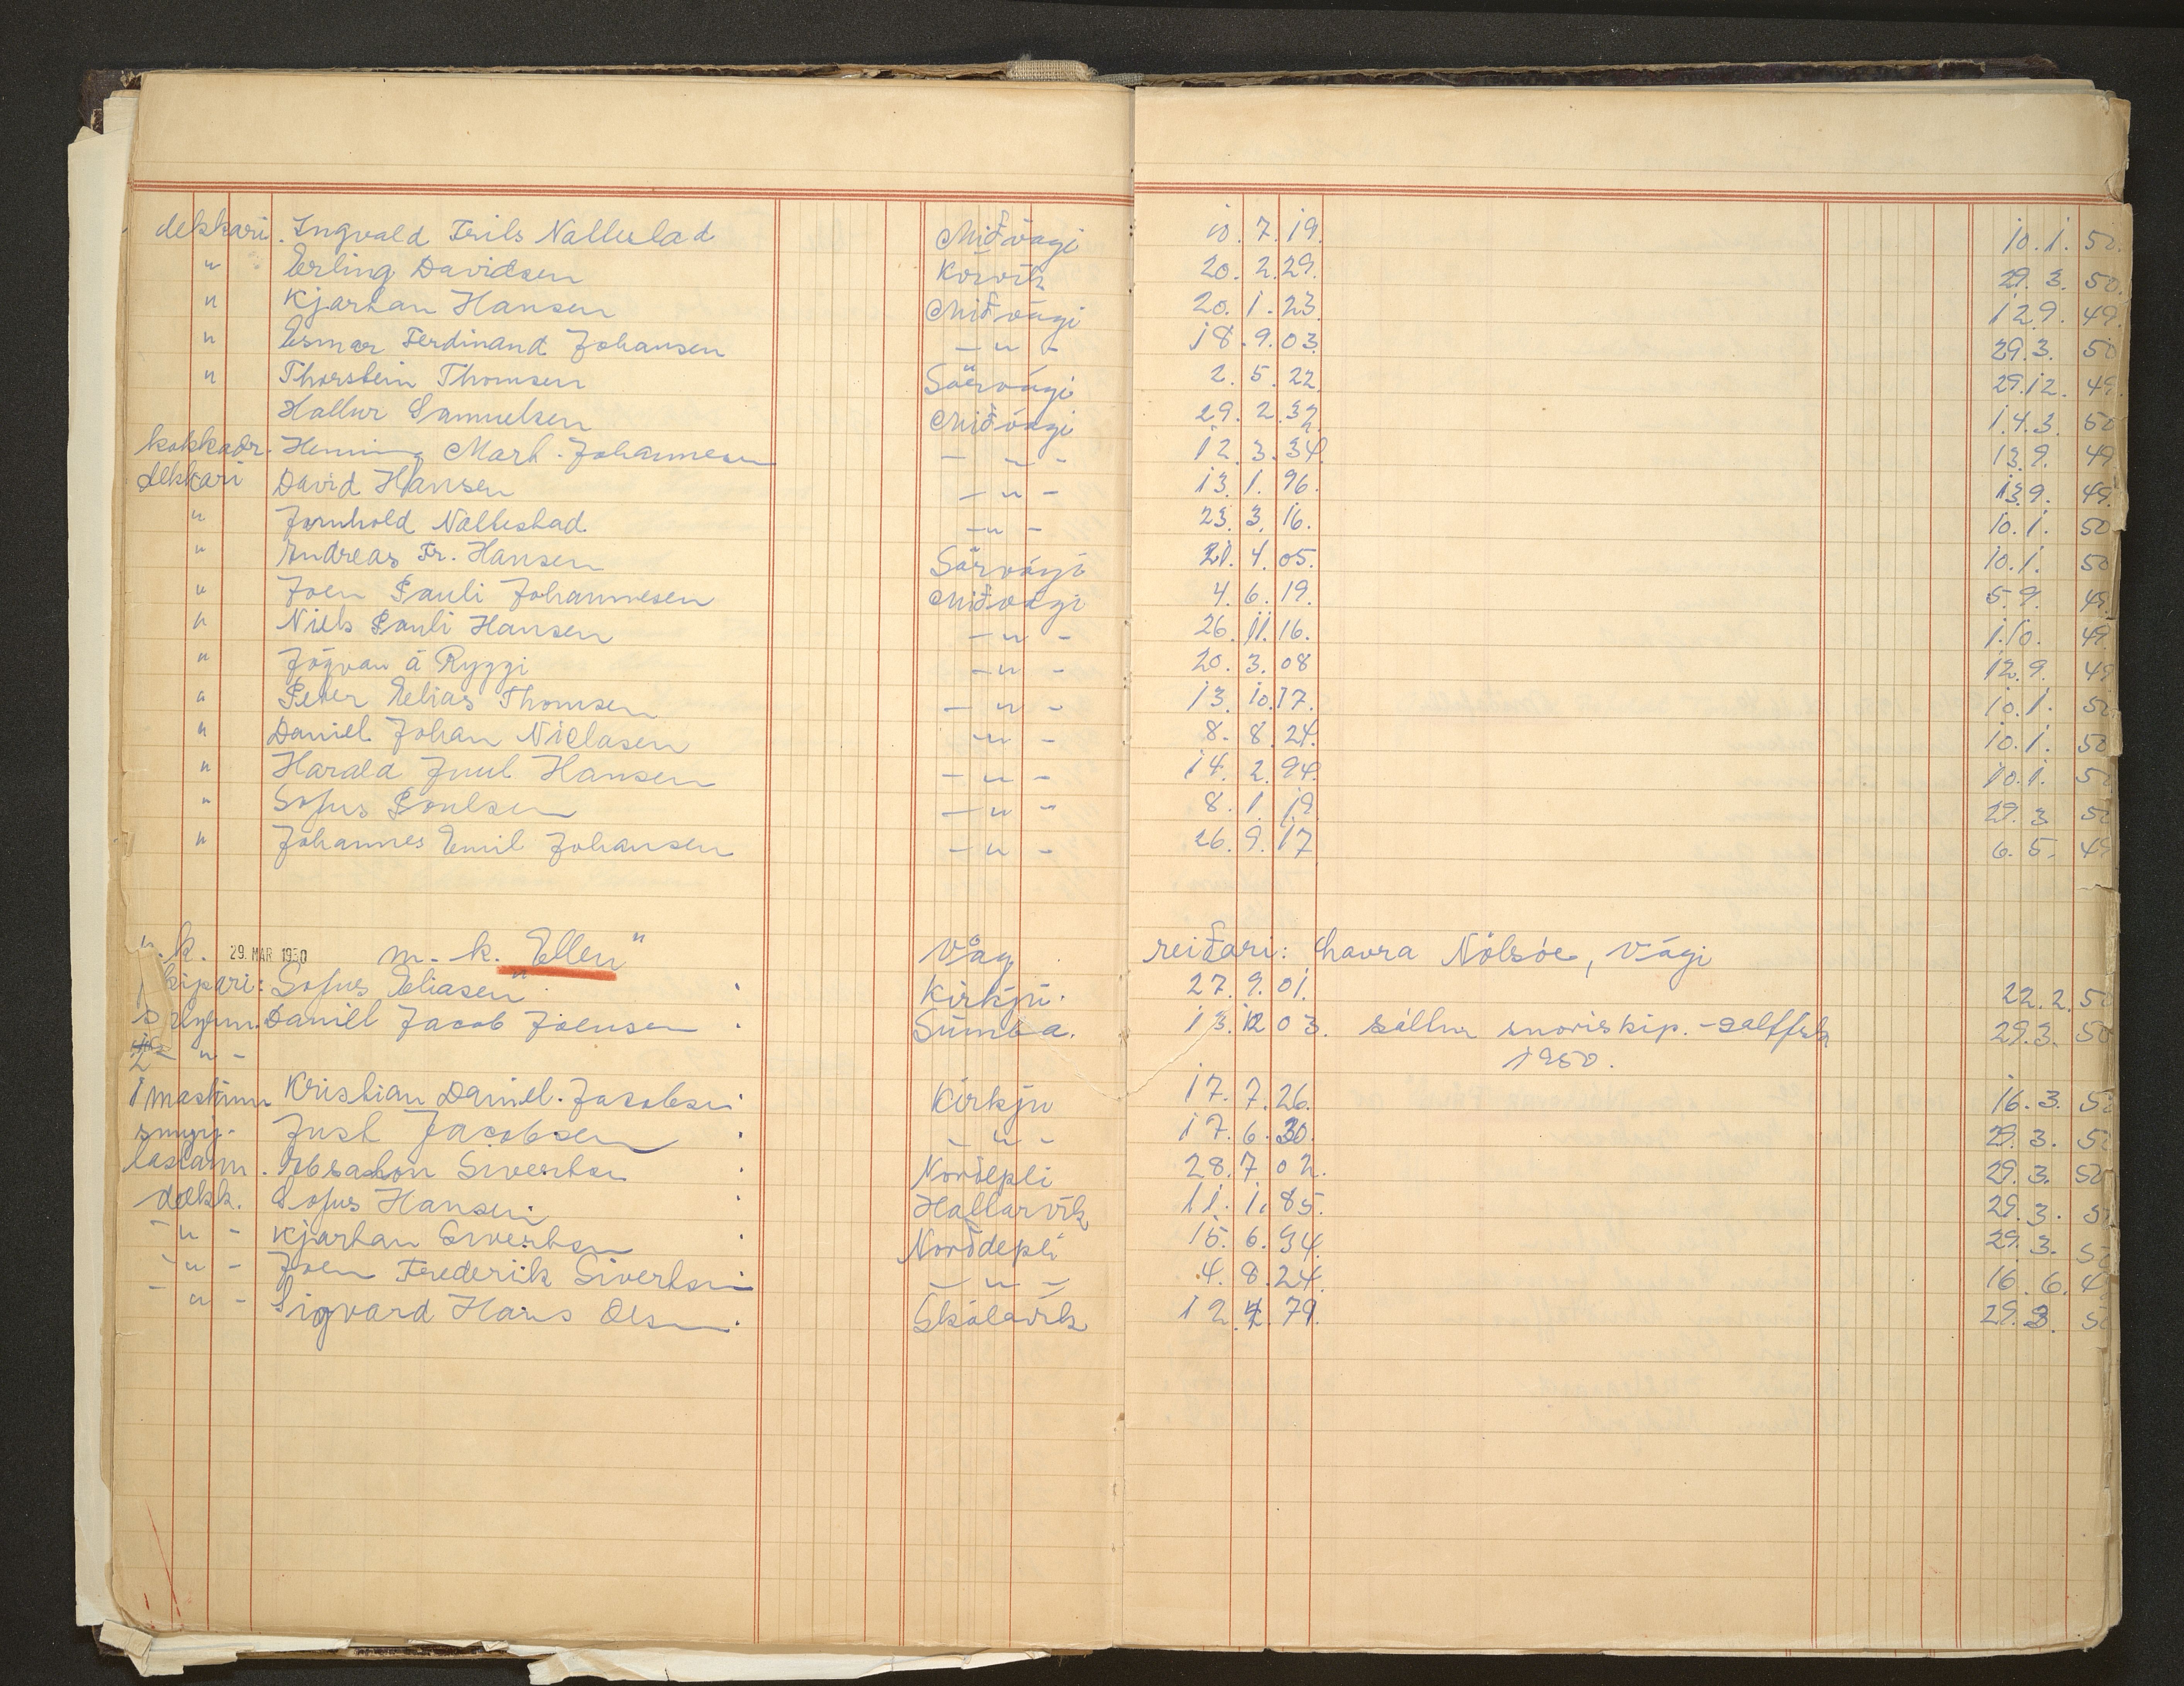 dekkari. Ingvald Frils Nallestad Miðvági 10. 7. 19. 10. 1. 50.
" Erling Davidsen Kvívík 20. 2. 29. 29. 3. 50.
" Kjartan Hansen Miðvági 20. 1. 23. 12 9. 49.
" Esmar Ferdinand Johansen — " — 18. 9. 03. 29. 3. 50
" Thorstein Thomsen Sörvági 2. 5. 22. 29. 12. 49.
Hallur Samuelsen Miðvági 29. 2. 32. 14. 3. 50
kokkadr. Henning Mart. Johannesen — " — 12. 3. 34. 13. 9. 49
dekkari David Hansen — " — 13. 1. 96. 13. 9. 49.
" Jornhold Nallestad. — " — 23. 3. 16. 10. 1. 50
" Andreas Fr. Hansen Sörvági 21. 4. 05. 10. 1. 50
" Joen Pauli Johannesen Miðvági 4. 6. 19. 5. 9. 49.
" Niels Pauli Hansen — " — 26. 11. 16. 1. 10. 49.
" Jógvan á Ryggi — " — 20. 3. 08 12. 9. 49
" Peter Elias Thomsen — " — 13. 10. 17. 10. 1. 50
" Daniel Johan Niclasen — " — 8. 8. 24. 10. 1. 50
" Harald Juul Hansen — " — 14. 2. 94. 10. 1. 50
" Sofus Poulsen — " — 8. 1. 19 29. 3 50
" Johannes Emil Johansen — " — 26. 9. 17 6. 5. 49
k. 29. MAR 1950 m. k. "Ellen" Vág reiðari: havra Nölsöe, Vági
kipari: Sofus Eliasen Kirkju. 27. 9. 01. 22. 2. 50
Daniel Jacob Joensen Sumba. 13. 12 03. sáttur snoriskip. - saltfisk 29. 3. 50
2 - " - 1950.
1 maskinm Kristian Daniel. Jacobsen Kirkju 17. 7. 26. 16. 3. 50
smyrj. Just Jacobsen — " — 17. 6. 30. 29. 3. 50
lastarm. Absalon Sivertsen Norðepli 28. 7 02. 29. 3. 50
dekk. Sofus Hansen Hattarvík 11. 1. 85. 29. 3. 50
- " - Kjartan Sivertsen Norðdepli 15. 6. 34. 29. 3. 50
- " - Joen Frederik Sivertsen — " — 4. 8. 24. 16. 6. 4
- " - Sigvard Hans Olsen Skálavík 12. 4. 79. 29. 3. 50